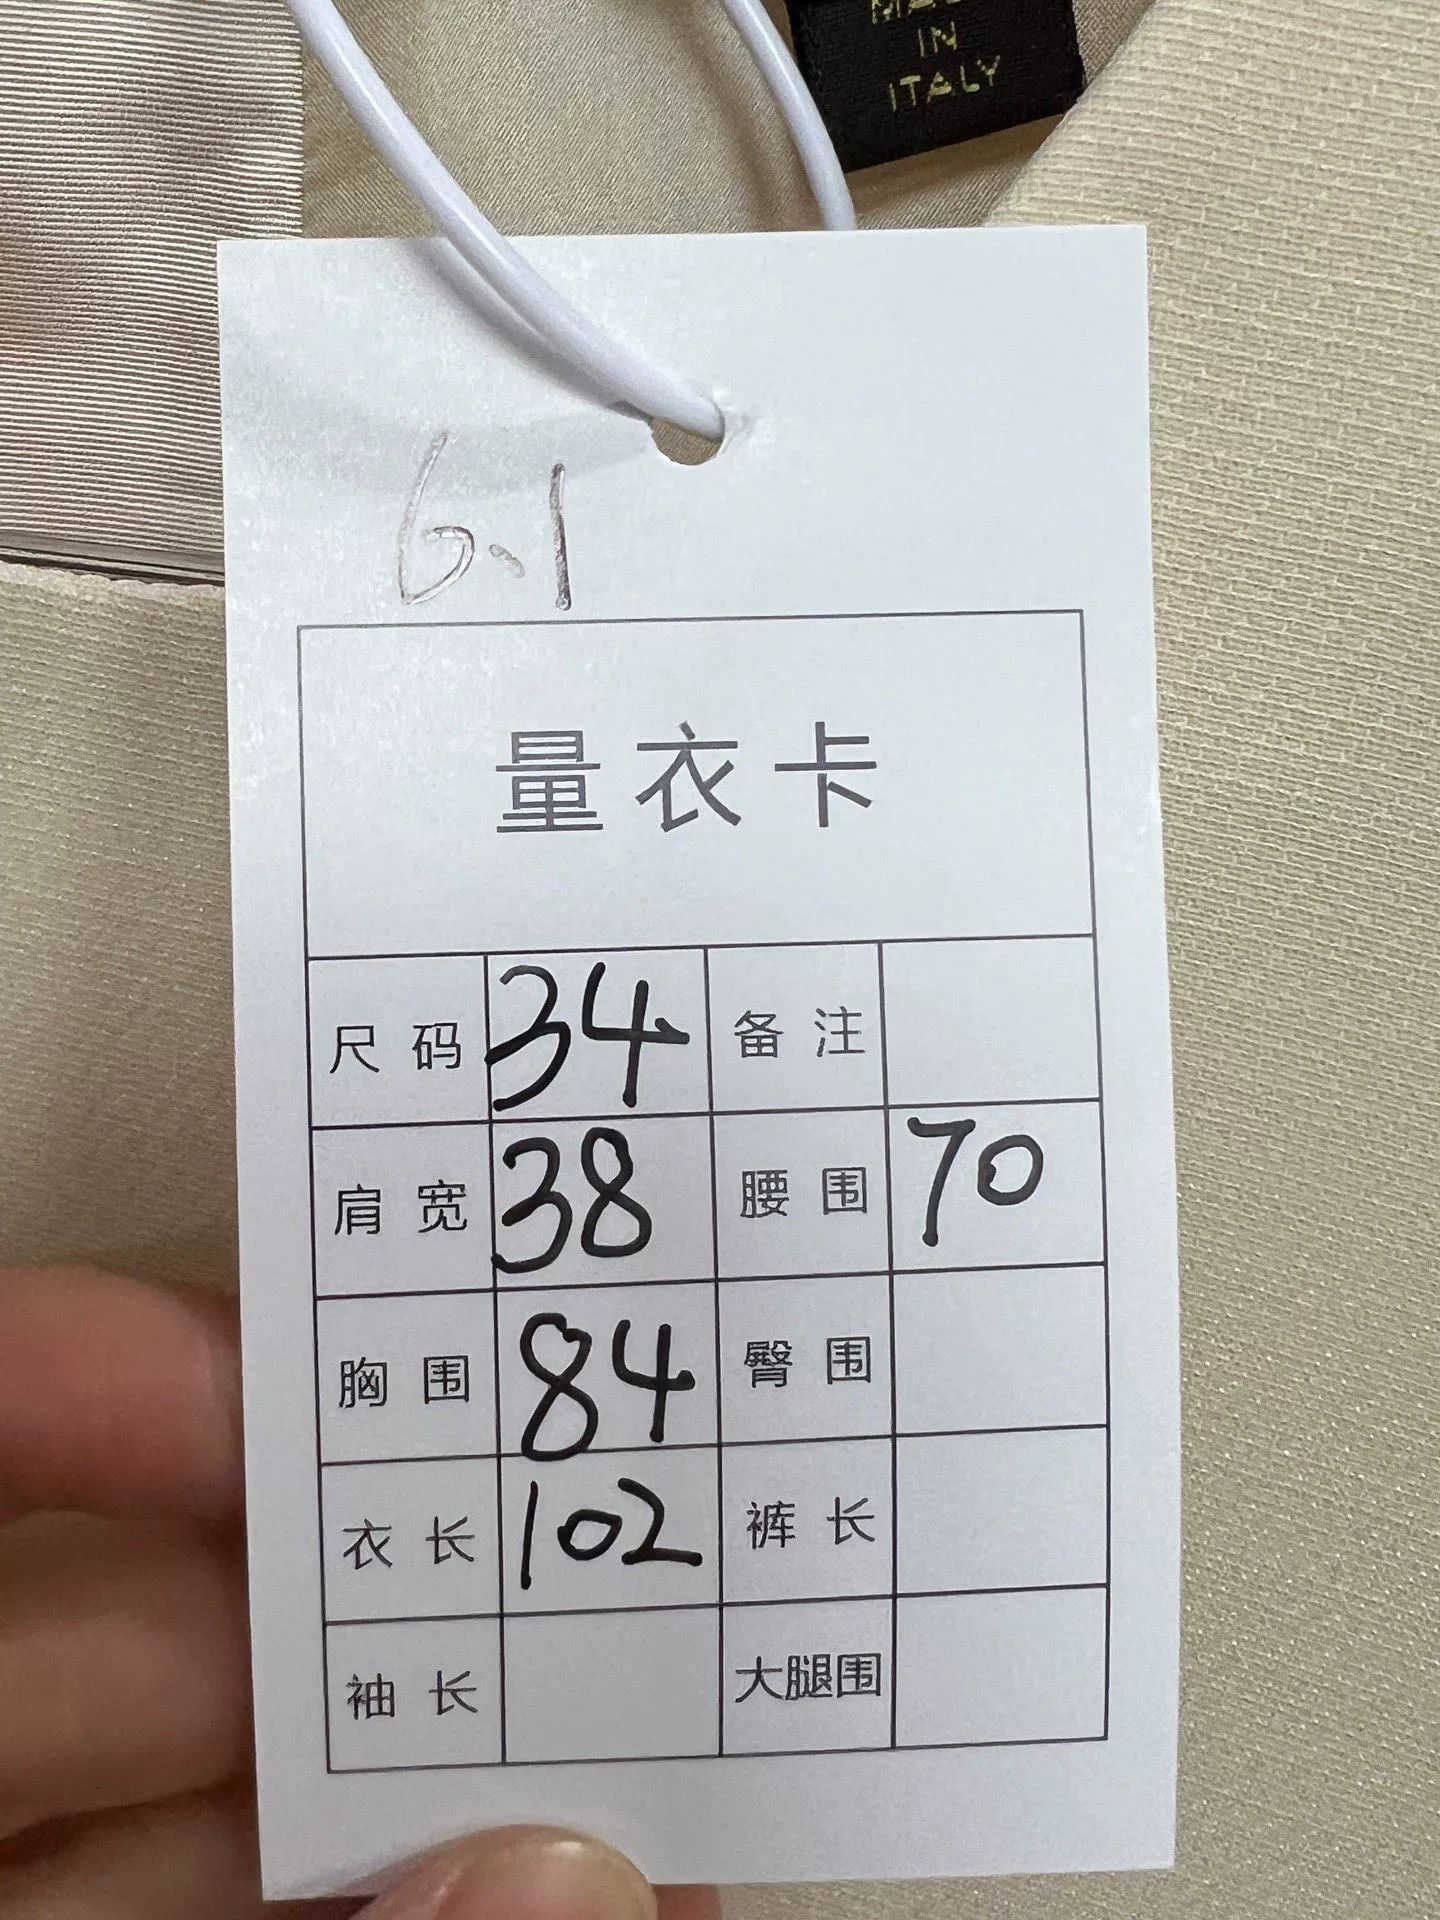 IN
ITALY
6.1
量衣卡
尺码 34 备注
肩宽 38 腰围 70
胸围 84 臀围
衣长 102 裤长
袖长 大腿围